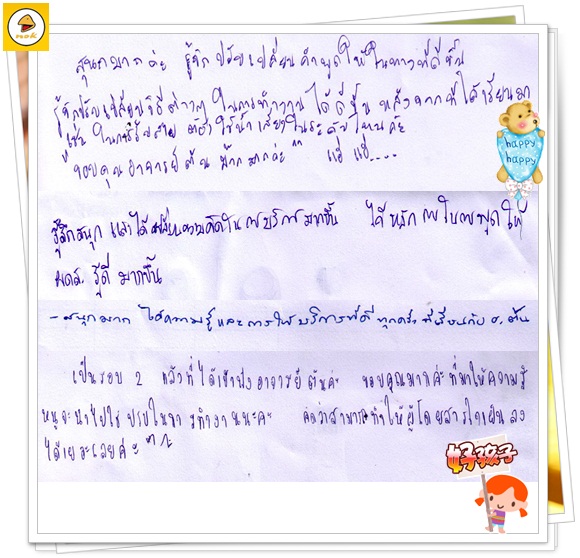 nok
สนุกมากค่ะ รู้จักปรับเปลี่ยนคำพูดให้ในทางที่ดีขึ้น
รู้จักปรับเปลี่ยนวิธีต่างๆ ในการทำงานได้ดีขึ้น หลังจากที่ได้เรียนมา
เช่น ในการรับสาย ต้องใช้น้ำเสียงในระดับไหนค่ะ
ขอบคุณอาจารย์ต้น มากมากค่ะ ^^ แฮ่ แฮ่....
happy
happy
รู้สึกสนุก และได้เปลี่ยนความคิดในการบริการมากขึ้น ได้หลักการในการพูดให้
ผดส. รู้ดี มากขึ้น
- สนุกมาก ได้ความรู้และการให้บริการที่ดี ทุกครั้ง ที่เรียนกับ อ. ต้น
เป็นรอบ 2 แล้วที่ได้เข้าฟังอาจารย์ต้นค่ะ ขอบคุณมากค่ะที่มาให้ความรู้
หนูจะนำไปใช้ ปรับในการทำงานนะคะ คิดว่าสามารถทำให้ผู้โดยสารใจเย็นลง
ได้เยอะเลยค่ะ ^^
好孩子